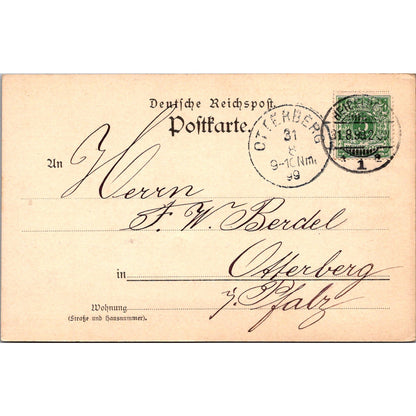 Deutsche Reichspost.
Postkarte.
OTTERBERG
31
8
9-10Nm.
99
1
An
Herrn
F. W. Berdel
in Otterberg
Pfalz
Wohnung
(Straße und Hausnummer).